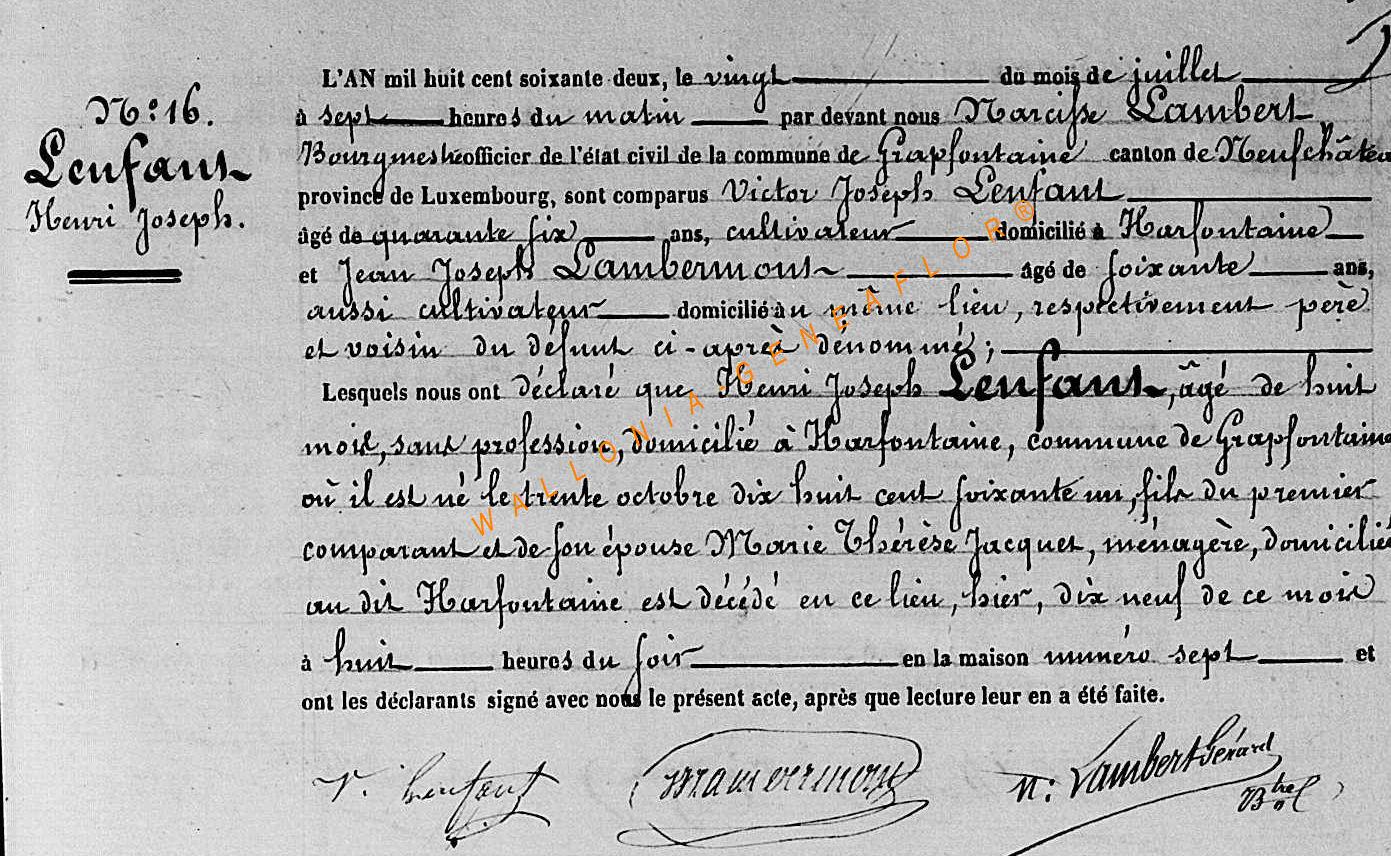 N.o 16.
Lenfant
Henri Joseph.
L'AN mil huit cent soixante deux, le vingt du mois de juillet
à sept heures du matin par devant nous Narcisse Lambert
Bourgmestre officier de l'état civil de la commune de Grapfontaine canton de Neufchâteau
province de Luxembourg, sont comparus Victor Joseph Lenfant
âgé de quarante six ans, cultivateur domicilié à Harfontaine
et Jean Joseph Lambermont âgé de soixante ans,
aussi cultivateur domicilié au même lieu, respectivement père
et voisin du défunt ci-après dénommé;
Lesquels nous ont déclaré que Henri Joseph Lenfant, âgé de huit
mois, sans profession, domicilié à Harfontaine, commune de Grapfontaine
où il est né le trente octobre dix huit cent soixante un, fils du premier
comparant et de son épouse Marie Thérèse Jacquet, ménagère, domiciliée
au dit Harfontaine est décédé en ce lieu, hier, dix neuf de ce mois
à huit heures du soir en la maison numéro sept et
ont les déclarants signé avec nous le présent acte, après que lecture leur en a été faite.
V. Lenfant
N: Lambert Gérard
Btre
WALLONIA-GENEAFLOR®